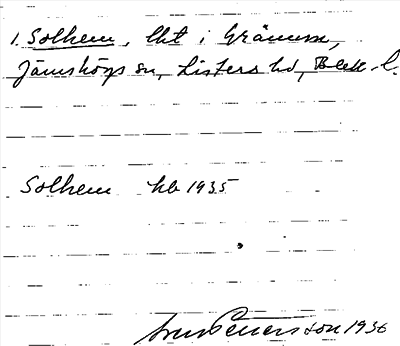 1. Solhem, lht i Grämum,
Jämshögs sn, Listers hd, Blek. l.
Solhem hb 1935
Petersson 1936